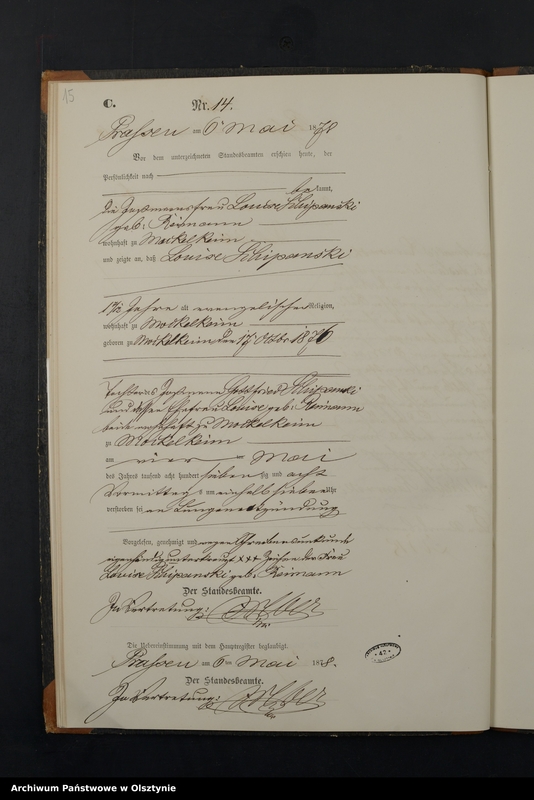 15
C.
Nr. 14.
Prassen am 6 Mai 1878
Vor dem unterzeichneten Standesbeamten erschien heute, der
Persönlichkeit nach
bekannt,
die Instmannsfrau Louise Schipanski
geb: Reimann
wohnhaft zu Mockelkeim
und zeigte an, daß Louise Schipanski
1 1/2 Jahre alt evangelischer Religion,
wohnhaft zu Mockelkeim
geboren zu Mockelkeim, den 17 Oktbr 1876
Tochter des Gottfried Schipanski
und dessen Ehefrau Louise geb: Reimann
beide wohnhaft zu Mockelkeim
zu Mockelkeim
am vier ten Mai
des Jahres tausend acht hundert sieben zig und acht
Vormittags um einhalb sieben Uhr
verstorben sei, an Lungenentzündung
Vorgelesen, genehmigt und wegen Schreibensunkunde
eigenhändig unterkreuzt xxx Zeichen der Frau
Louise Schipanski geb. Reimann
Der Standesbeamte.
In Vertretung:
Die Uebereinstimmung mit dem Hauptregister beglaubigt.
Prassen am 6 ten Mai 1878.
Der Standesbeamte.
In Vertretung:
47
Archiwum Państwowe w Olsztynie